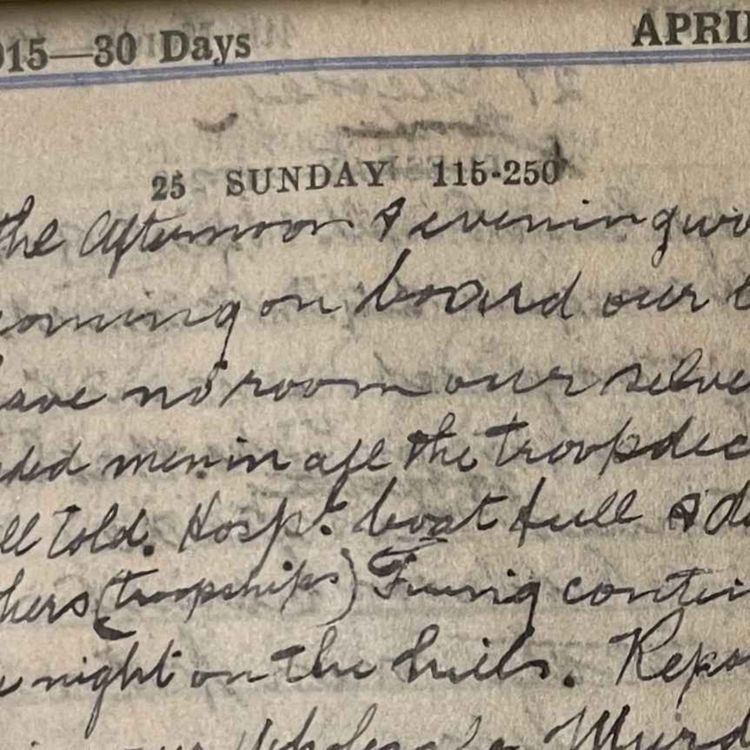 015—30 Days APRIL
25 SUNDAY 115-250
the afternoon & evening
coming on board our
have no room our selve
ded men in all the troopdec
ll Told. Hospt boat full &
hers (troopships) Firing contin
night on the hills. Repo
our Wholesale Murd